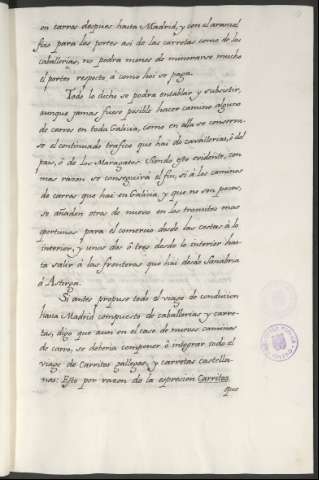 en carros despues hasta Madrid, y con el arancel
fixo para los portes asi de las carretas como de las
caballerias, no podra menos de minorarse mucho
el porte respecto á como hoi se paga.
Todo lo dicho se podra entablar y subsistir,
aunque jamas fuese posible hacer camino alguno
de carros en toda Galicia, como en ella se conserva-
se el continuado trafico que hai de caballerias, ó del
pais, ó de los Maragatos. Siendo esto evidente, con
mas razon se conseguirá el fin, si á los caminos
de carros, que hai en Galicia, y que no son pocos,
se añaden otros de nuevo en los transitos mas
oportunos para el comercio desde las costas á lo
interior, y unos dos ó tres desde lo interior has-
ta salir á las fronteras que hai desde Sanabria
á Astorga.
Si antes propuse todo el viage de conducion
hasta Madrid compuesto de caballerias y carre-
tas, digo que aun en el caso de nuevos caminos
de carro, se deberia componer ó integrar todo el
viage de Carritos gallegos, y carretas castella-
nas: Esto por razon de la espresion Carritos
que